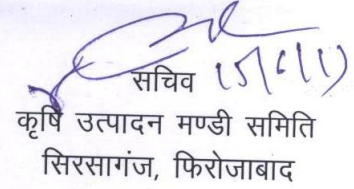 सचिव 15/6/11
कृषि उत्पादन मण्डी समिति
सिरसागंज, फिरोजाबाद